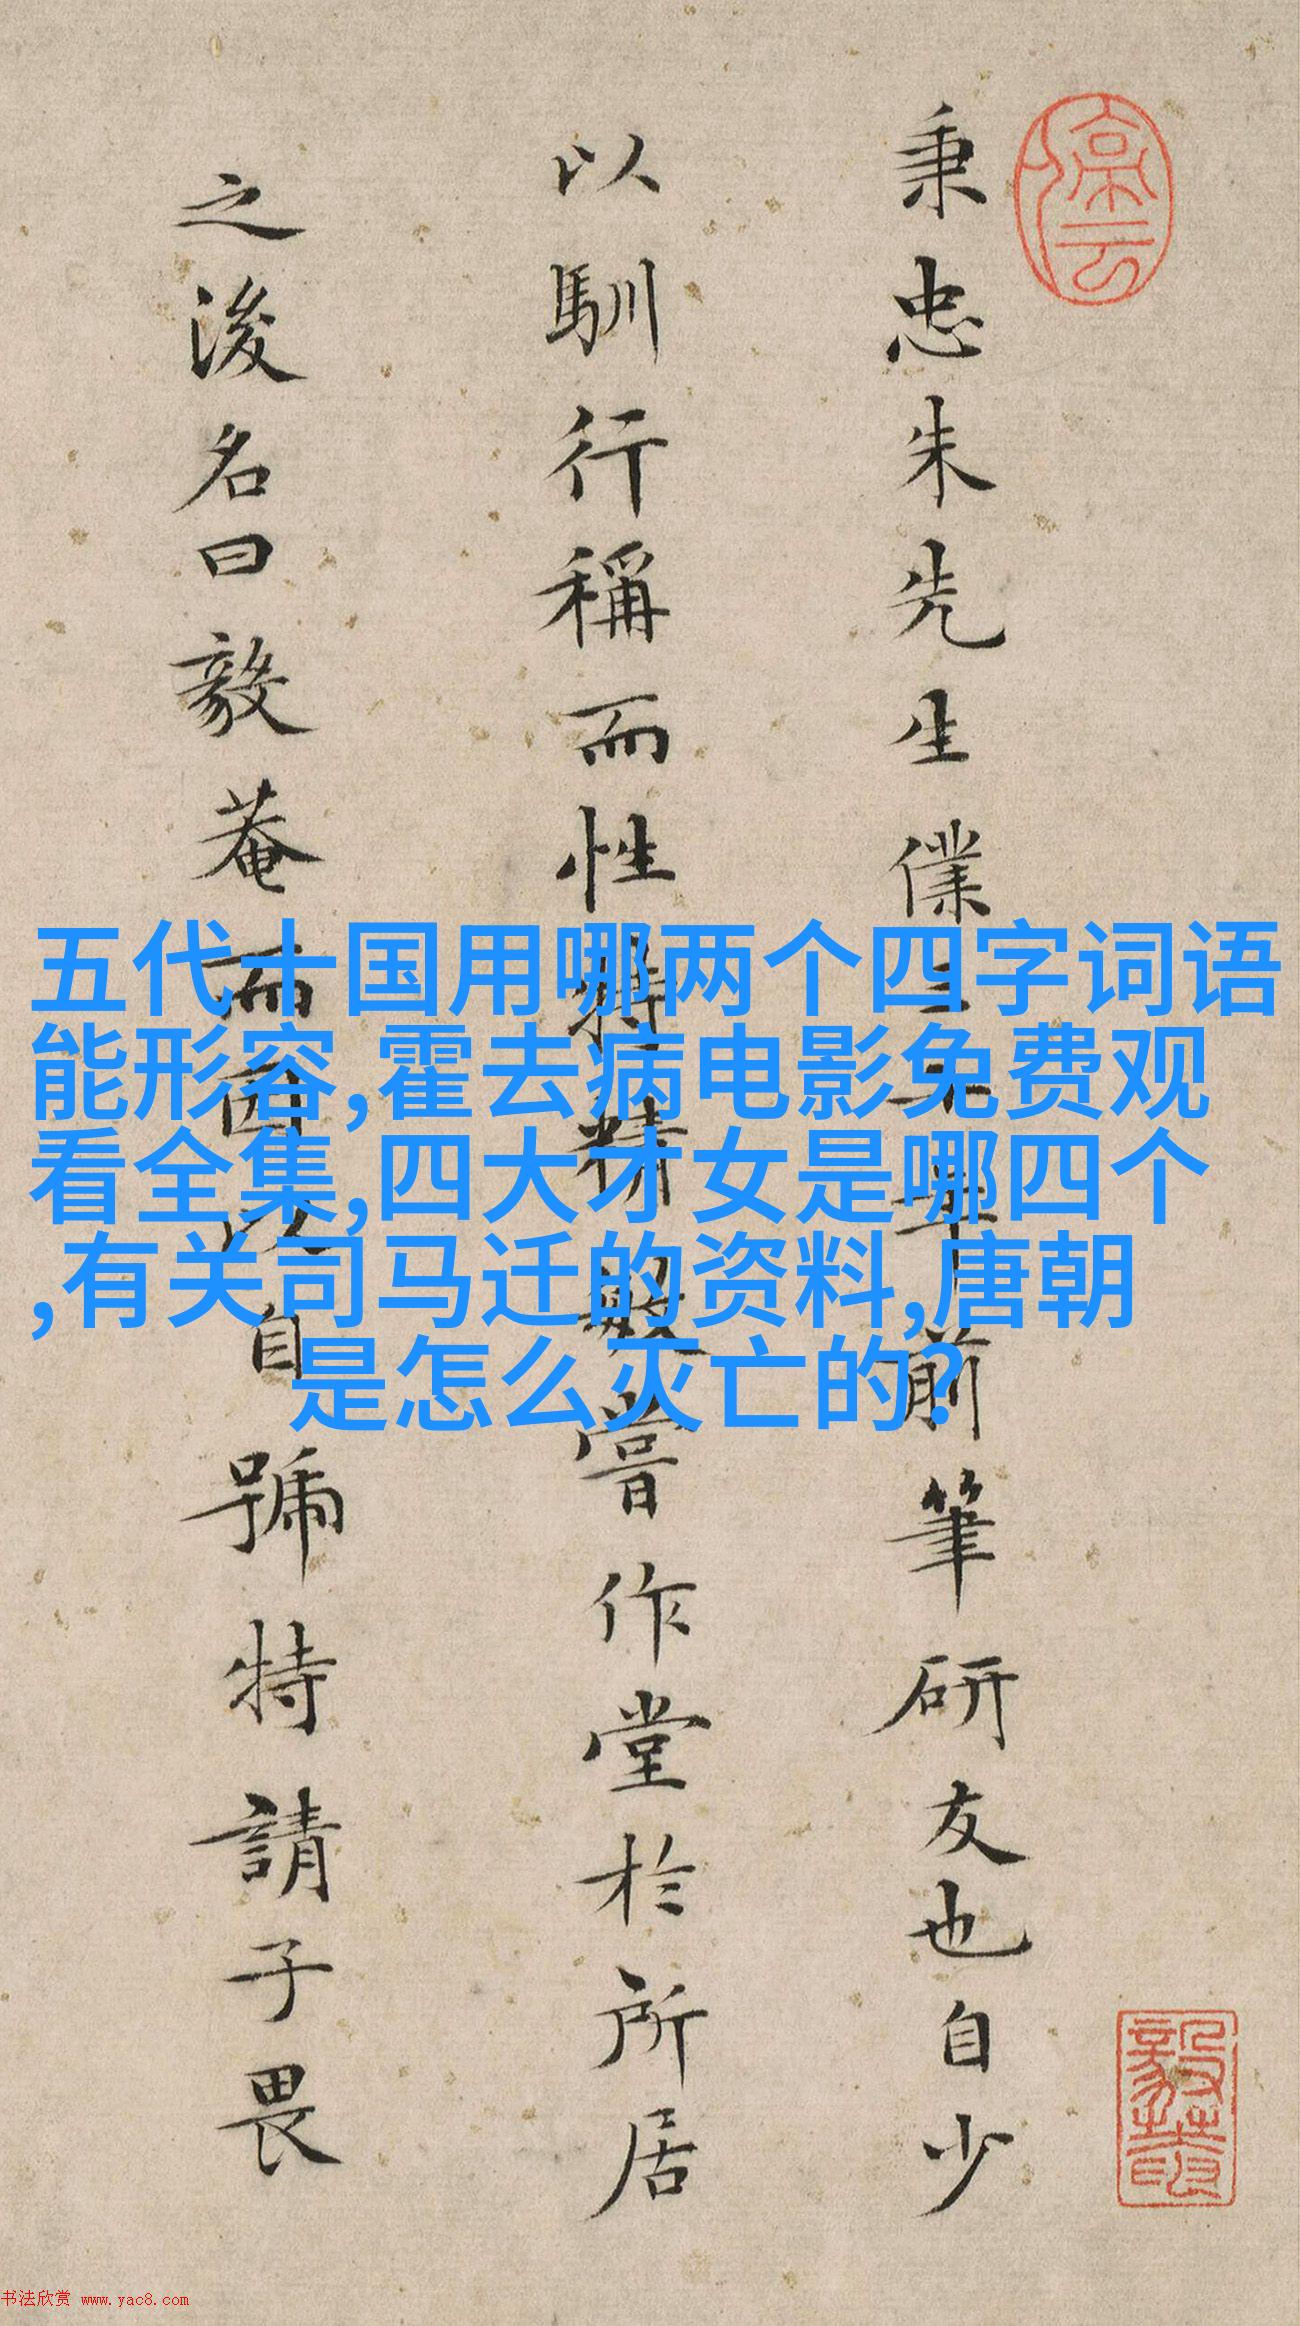 秉忠朱先生僕三十年前筆研友也自少
以馴行稱而性特精敏嘗作堂於所居
之後名曰毅菴而因以自號特請子畏
五代十国用哪两个四字词语
能形容,霍去病电影免费观
看全集,四大才女是哪四个
,有关司马迁的资料,唐朝
是怎么灭亡的?
书法欣赏 www.yac8.com